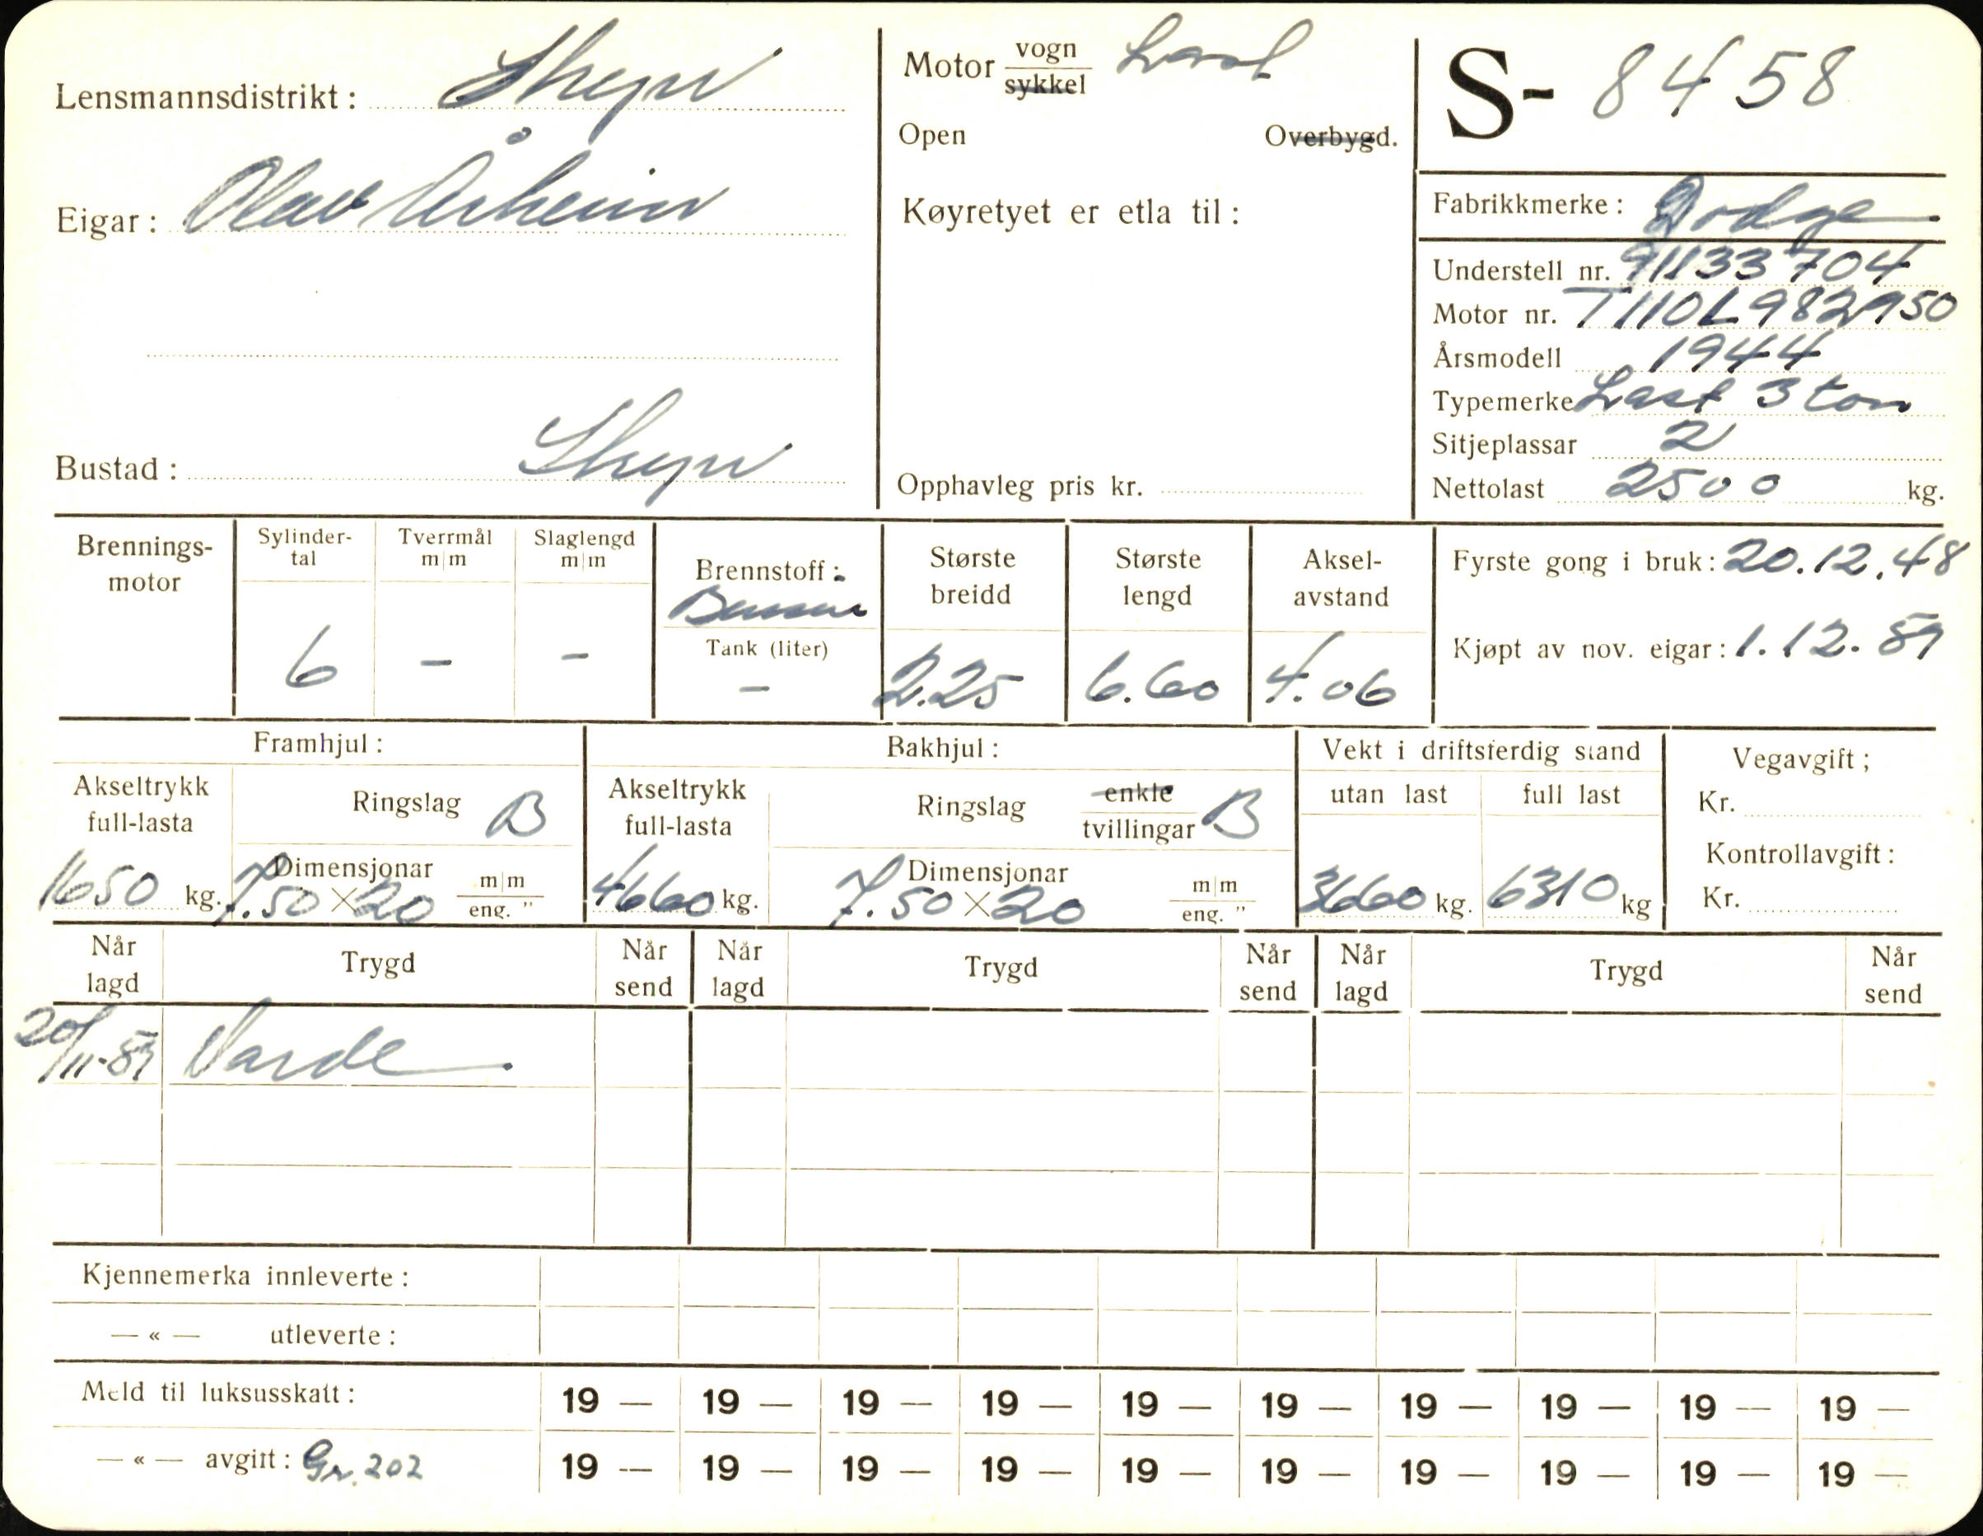 Lensmannsdistrikt: Stryn
Eigar: Olav Årheim
Bustad: Stryn
Motor vogn Last
sykkel
Open Overbygd.
Køyretyet er etla til:
Opphavleg pris kr.
S- 8458
Fabrikkmerke: Dodge
Understell nr. 91133704
Motor nr. T110L982950
Årsmodell 1944
Typemerke Last 3 ton
Sitjeplassar 2
Nettolast 2500 kg.
Brennings-
motor
Sylinder-
tal
6
Tverrmål
m/m
-
Slaglengd
m/m
-
Brennstoff:
Bensin
Tank (liter)
-
Største
breidd
2.25
Største
lengd
6.60
Aksel-
avstand
4.06
Fyrste gong i bruk: 20.12.48
Kjøpt av nov. eigar: 1.12.59
Framhjul:
Akseltrykk
full-lasta
1650 kg.
Ringslag B
Dimensjonar
7.50 × 20
m/m
eng. "
Bakhjul:
Akseltrykk
full-lasta
4660 kg.
Ringslag enkle
tvillingar B
Dimensjonar
7.50 × 20
m/m
eng. "
Vekt i driftsferdig stand
utan last full last
3660 kg. 6310 kg
Vegavgift;
Kr.
Kontrollavgift:
Kr.
Når
lagd
Trygd
Når
send
Når
lagd
Trygd
Når
send
Når
lagd
Trygd
Når
send
20/11-59 Varde
Kjennemerka innleverte:
— « — utleverte:
Meld til luksusskatt: 19 — 19 — 19 — 19 — 19 — 19 — 19 — 19 — 19 — 19 —
— « — avgift: Gr. 202 19 — 19 — 19 — 19 — 19 — 19 — 19 — 19 — 19 — 19 —